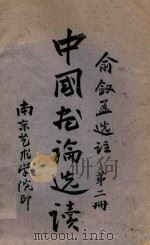 俞叙孟选注(第二册)
中国书论选读
南京艺术学院印